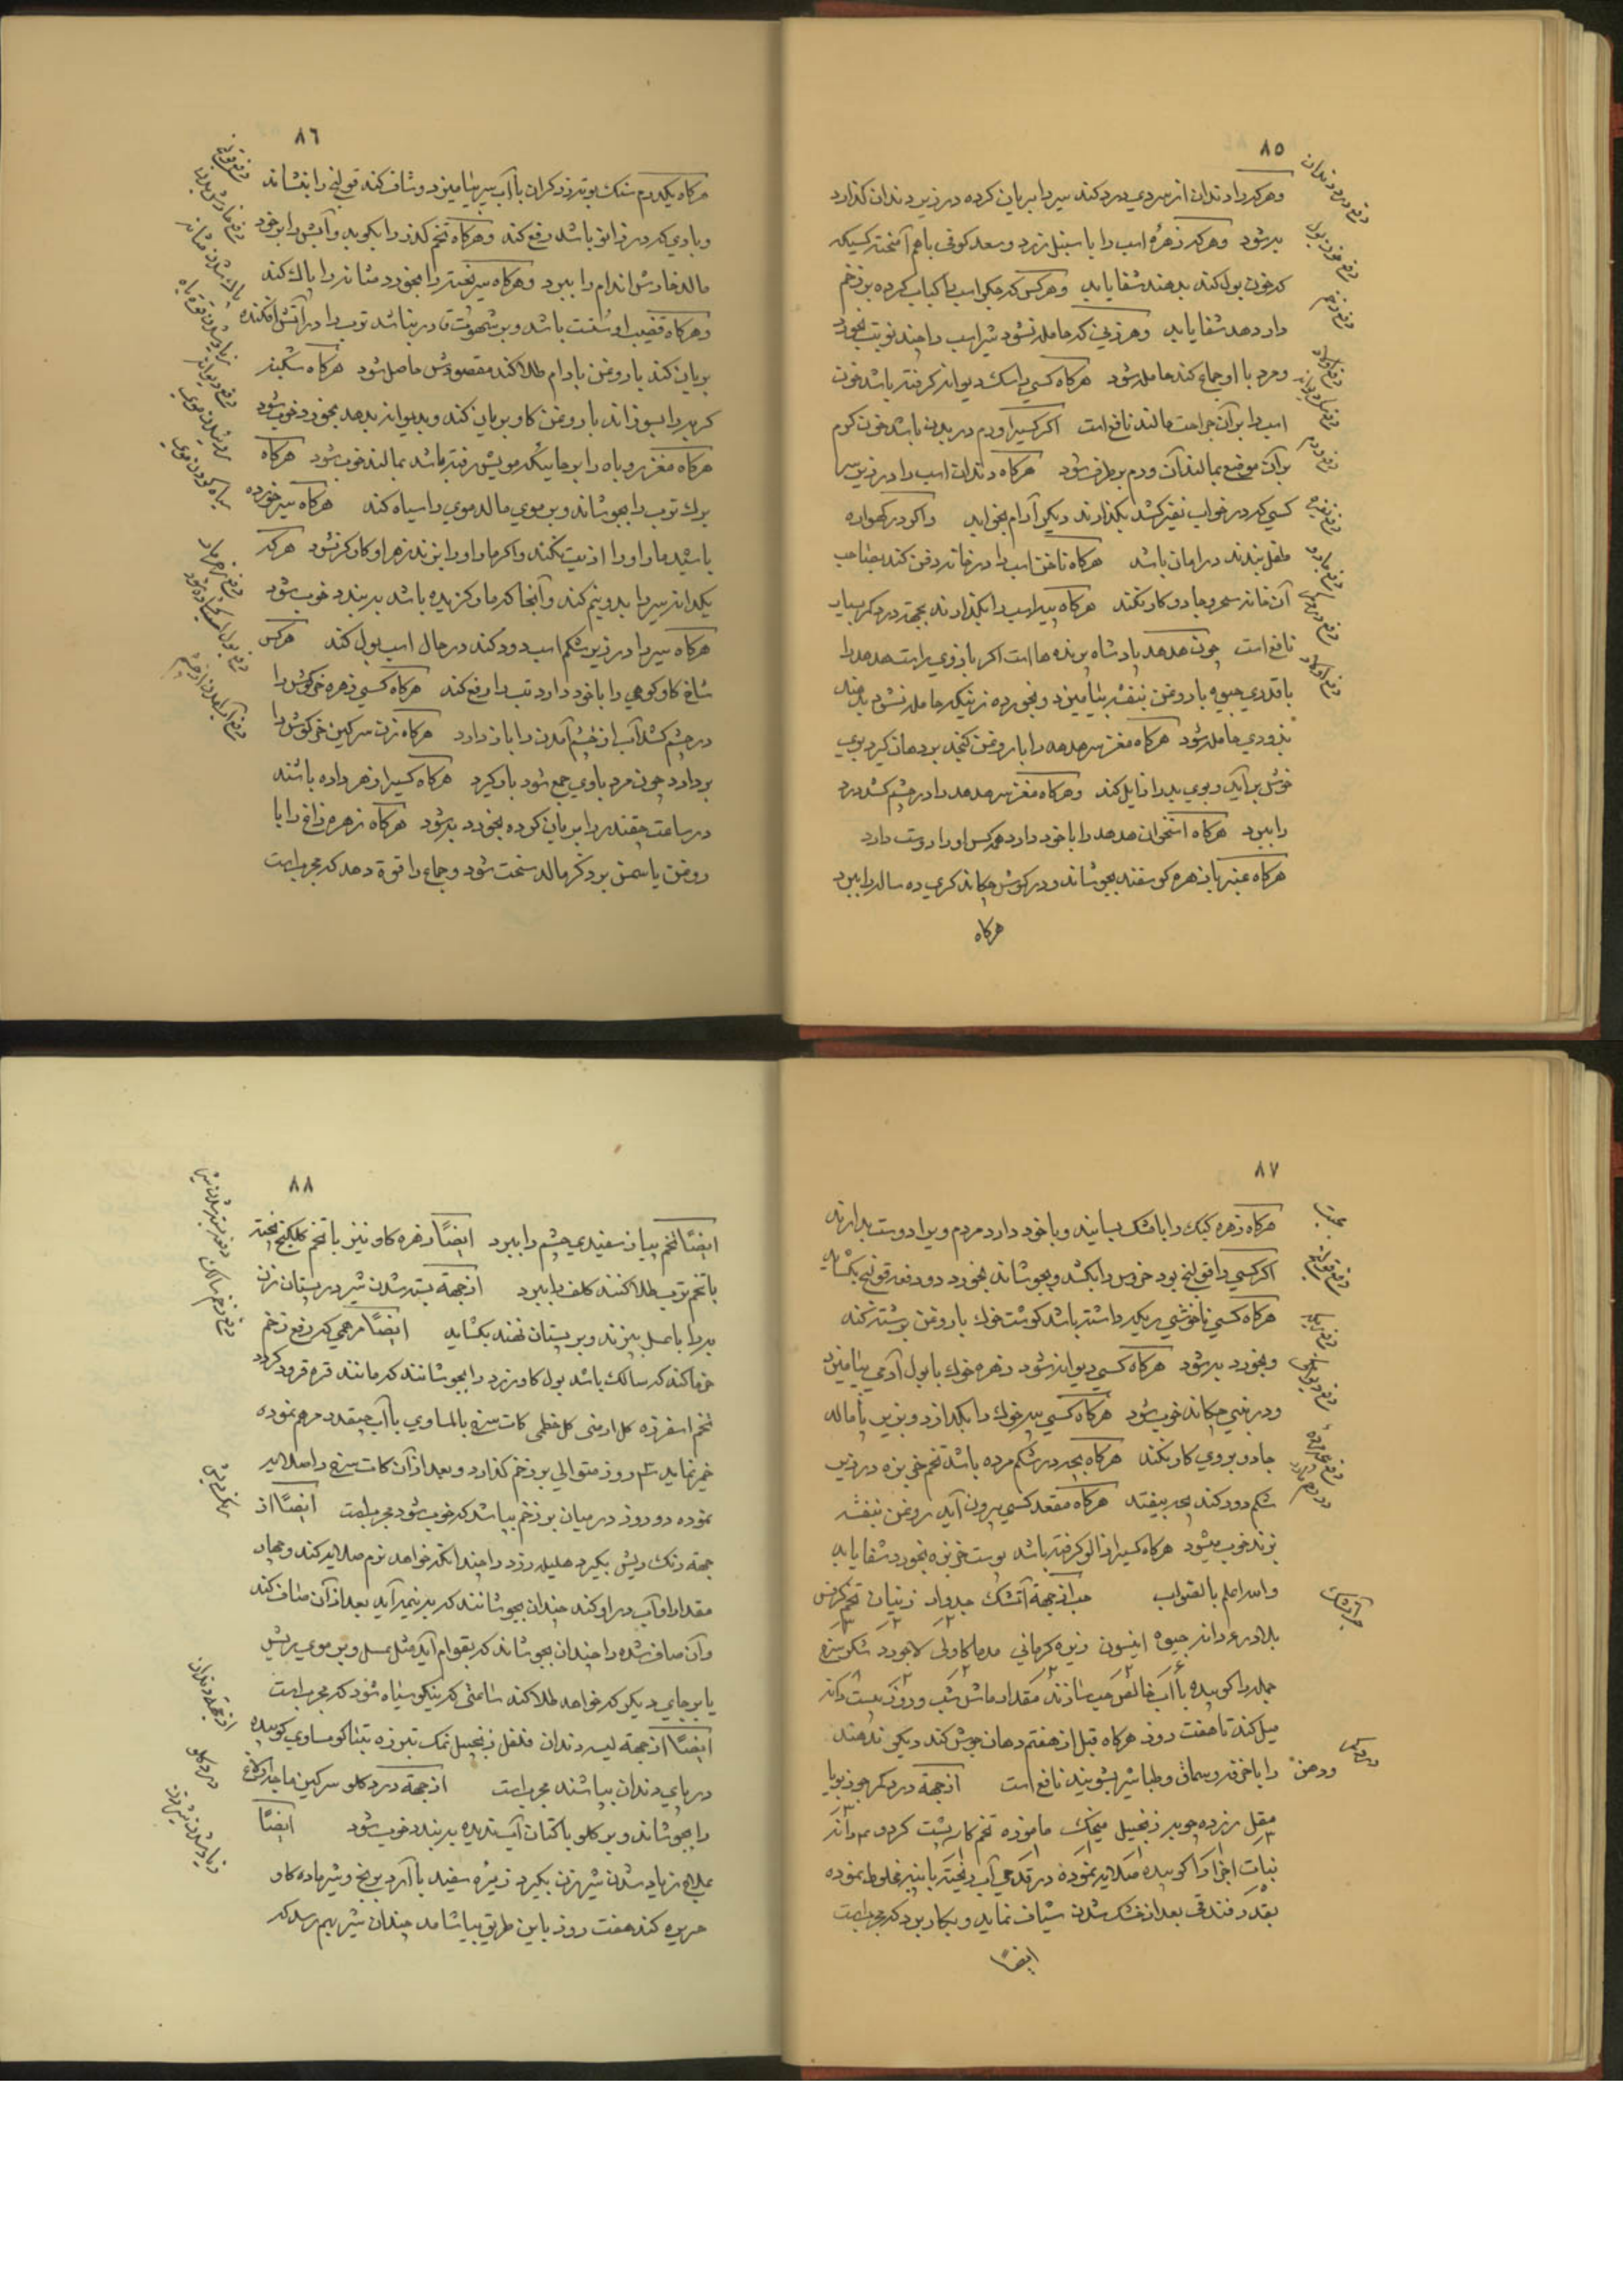 ٨٥
وهرکه را دندان از سردی درد کند سیر را بریان کرده در زیر دندان کذارد
به شود وهرکه زهرهٔ اسب را با سنبل زرد وسعد کوفی باهم آمیخته کسیکه
که خون بول کند بدهند شفا یابد وهرکس که جکر اسب را کباب کرده بر زخم
دارد هد شفا یابد وهر زنی که حامله نشود شیر اسب را چند نوبت بخورد
ومرد با او جماع کند حامله شود هرکاه کسی را سک دیوانه کرفته باشد خون
اسب را بر آن جراحت مالند نافع است اکر کسیرا ورم در بدن باشد خون کرم
بر آن موضع بمالند آن ورم برطرف شود هرکاه دندان اسب را در زیر سر
کسی که در خواب نفیر کشد بکذارند دیکر آرام بخوابد واکر در کهواره
طفل بندند در امان باشد هرکاه ناخن اسب را در خانه دفن کند بصاحب
آن خانه سحر وجادو کار نکند هرکاه پیه اسب را بکذارند بجهة درد کمر بسیار
نافع است چون هدهد پادشاه پرنده ها است اکر بازوی راست هدهد را
با قدری جیوه با روغن بنفشه بیامیزد وبخورده زنیکه حامله نشود بدهند
بزودی حامله شود هرکاه مغز سر هدهد را با روغن کنجد بر دهان کیرد بوی
خوش برآید وبوی بد را زایل کند وهرکاه مغز سر هدهد را در چشم کشد درد
را ببرد هرکاه استخوان هدهد را با خود دارد همه کس او را دوست دارد
هرکاه عنبر با زهره کوسفند بجوشاند ودر کوش چکاند کری ده ساله را ببرد
هرکاه
دفع درد دندان
دفع خون بول
دفع زخم
دفع ورم
دفع نفیر
دفع جادو
٨٦
هرکاه یکدرم سنک بوته زرکران با آب سیر بیامیزد وشاف کند قولنج را بنشاند
وبادی که در زانو باشد دفع کند وهرکاه تخم کذر را بکوبد وآبش را بر خود
مالد خارش اندام را ببرد وهرکاه سیر پخته را بخورد مثانه را پاک کند
وهرکاه قضیب او سست باشد وبر شهوت قادر نباشد ترب را در آتش افکنده
بریان کند با روغن بادام طلا کند مقصودش حاصل شود هرکاه سکبینه
کربه را بسوزاند با روغن کاو بریان کند وبدیوانه بدهد بخورد خوب شود
هرکاه مغز روباه را بر جاییکه مویش رفته باشد بمالند خوب شود هرکاه
برک ترب را بجوشاند وبر موی مالد موی را سیاه کند هرکاه سیر خورده
باشید مار او را اذیت نکند واکر مار او را بزند زهر او کارکر نشود هرکه
یکدانه سیر را بدو نیم کند وآنجا که مار کزیده باشد بر بندد خوب شود
هرکاه سیر را در زیر شکم اسب دود کند در حال اسب بول کند هرکس
شاخ کاو کوهی را با خود دارد تب را رفع کند هرکاه کسی زهره خرکوش را
در چشم کشد آب از چشم آمدن را باز دارد هرکاه زن سرکین خرکوش را
بردارد چون مرد با وی جمع شود بار کیرد هرکاه کسیرا زهر داده باشند
در ساعت چقندر را بریان کرده بخورد به شود هرکاه زهره زاغ را با
روغن یاسمن بر ذکر مالد سخت شود وجماع را قوة دهد که مجرب است
سیاه کردن موی
٨٧
هرکاه زهره کبک را با مشک بسایند وبا خود دارد مردم ویرا دوست بدارند
اکر کسی را قولنج بود خروس را بکشد وبجوشاند بخورد دو دفعه قولنج بکشاید
هرکاه کسی ناخوشی ریکه داشته باشد کوشت خوک با روغن برشته کند
وبخورد به شود هرکاه کسی دیوانه شود زهره خوک با بول آدمی بیامیزد
ودر بینی چکاند خوب شود هرکاه کسی پیه خوک را بکدازد وبزیر پا مالد
جادو بر وی کار نکند هرکاه بچه در شکم مرده باشد تخم خربزه در زیر
شکم دود کند بچه بیفتد هرکاه مقعد کسی بیرون آید روغن بنفشه
بزند خوب میشود هرکاه کسیرا زالو کرفته باشد پوست خربزه بخورد شفا یابد
والله اعلم بالصواب حب از جهة آتشک جدوار زنیان تخم کرفس
بلادر دانه جیوه انیسون زیره کرمانی
جمله را کوبیده با آب خالص حب سازند مقدار ماش شب وروز بیست دانه
میل کند تا هفت روز هرکاه قبل از هفتم دهان جوش کند دیکر ندهند
ودهن را با خرفه وسماق وطباشیر بشویند نافع است از جهة درد کمر جوز بویا
مقل زرده چوبه زنجبیل میخک مازو
نبات اجزا را کوبیده صلایه نموده در قدحی آب ریخته با پنبه مخلوط نموده
بقدر فندقی بعد از خشک شدن شیاف نماید وبکار برد که مجرب است
ایضاً
محبت
دفع قولنج
درد کمر
٨٨
ایضاً تخم پیاز سفیدی چشم را ببرد ایضاً زهره کاو نیز با تخم
با تخم ترب طلا کنند کلف را ببرد از جهة بسته شدن شیر در پستان زن
به را با عسل بپزند وبر پستان نهند بکشاید ایضاً مرهمی که رفع زخم
خرما کند که سالک باشد بول کاو زرد را بجوشانند که مانند قره قروت کردد
تخم اسفرزه کل ارمنی کل خطمی کات سرخ بالمساوی با آب چقندر مرهم نموده
خمیر نماید ۳ روز متوالی بر زخم کذارد وبعد از آن کات سرخ را صلایه
نموده دو روز در میان بر زخم بپاشد که خوب شود مجرب است ایضاً از
جهة رنک ریش بکیرد هلیله زرد را چندانکه خواهد نرم صلایه کند وچهار
مقدار او آب در او کند چندان بجوشانند که به نیمه آید بعد از آن صاف کند
وآن صاف شده را چندان بجوشاند که بقوام آید مثل عسل وبر موی ریش
یا بر جای دیکر که خواهد طلا کند ساعتی که نیکو سیاه شود که مجرب است
ایضاً از جهة لیسه دندان فلفل زنجبیل نمک تنباکو مساوی کوبیده
در پای دندان بپاشند مجرب است از جهة درد کلو سرکین
را بجوشاند وبر کلو با کتان آب ندیده بربندد خوب شود ایضاً
علاج زیاد شدن شیر زن بکیرد زیره سفید با آرد برنج وشیر ماده کاو
حریره کند هفت روز باین طریق بیاشامد چندان شیر بهم رسد که
رنک ریش
از جهة دندان
درد کلو
زیاد شدن شیر زن